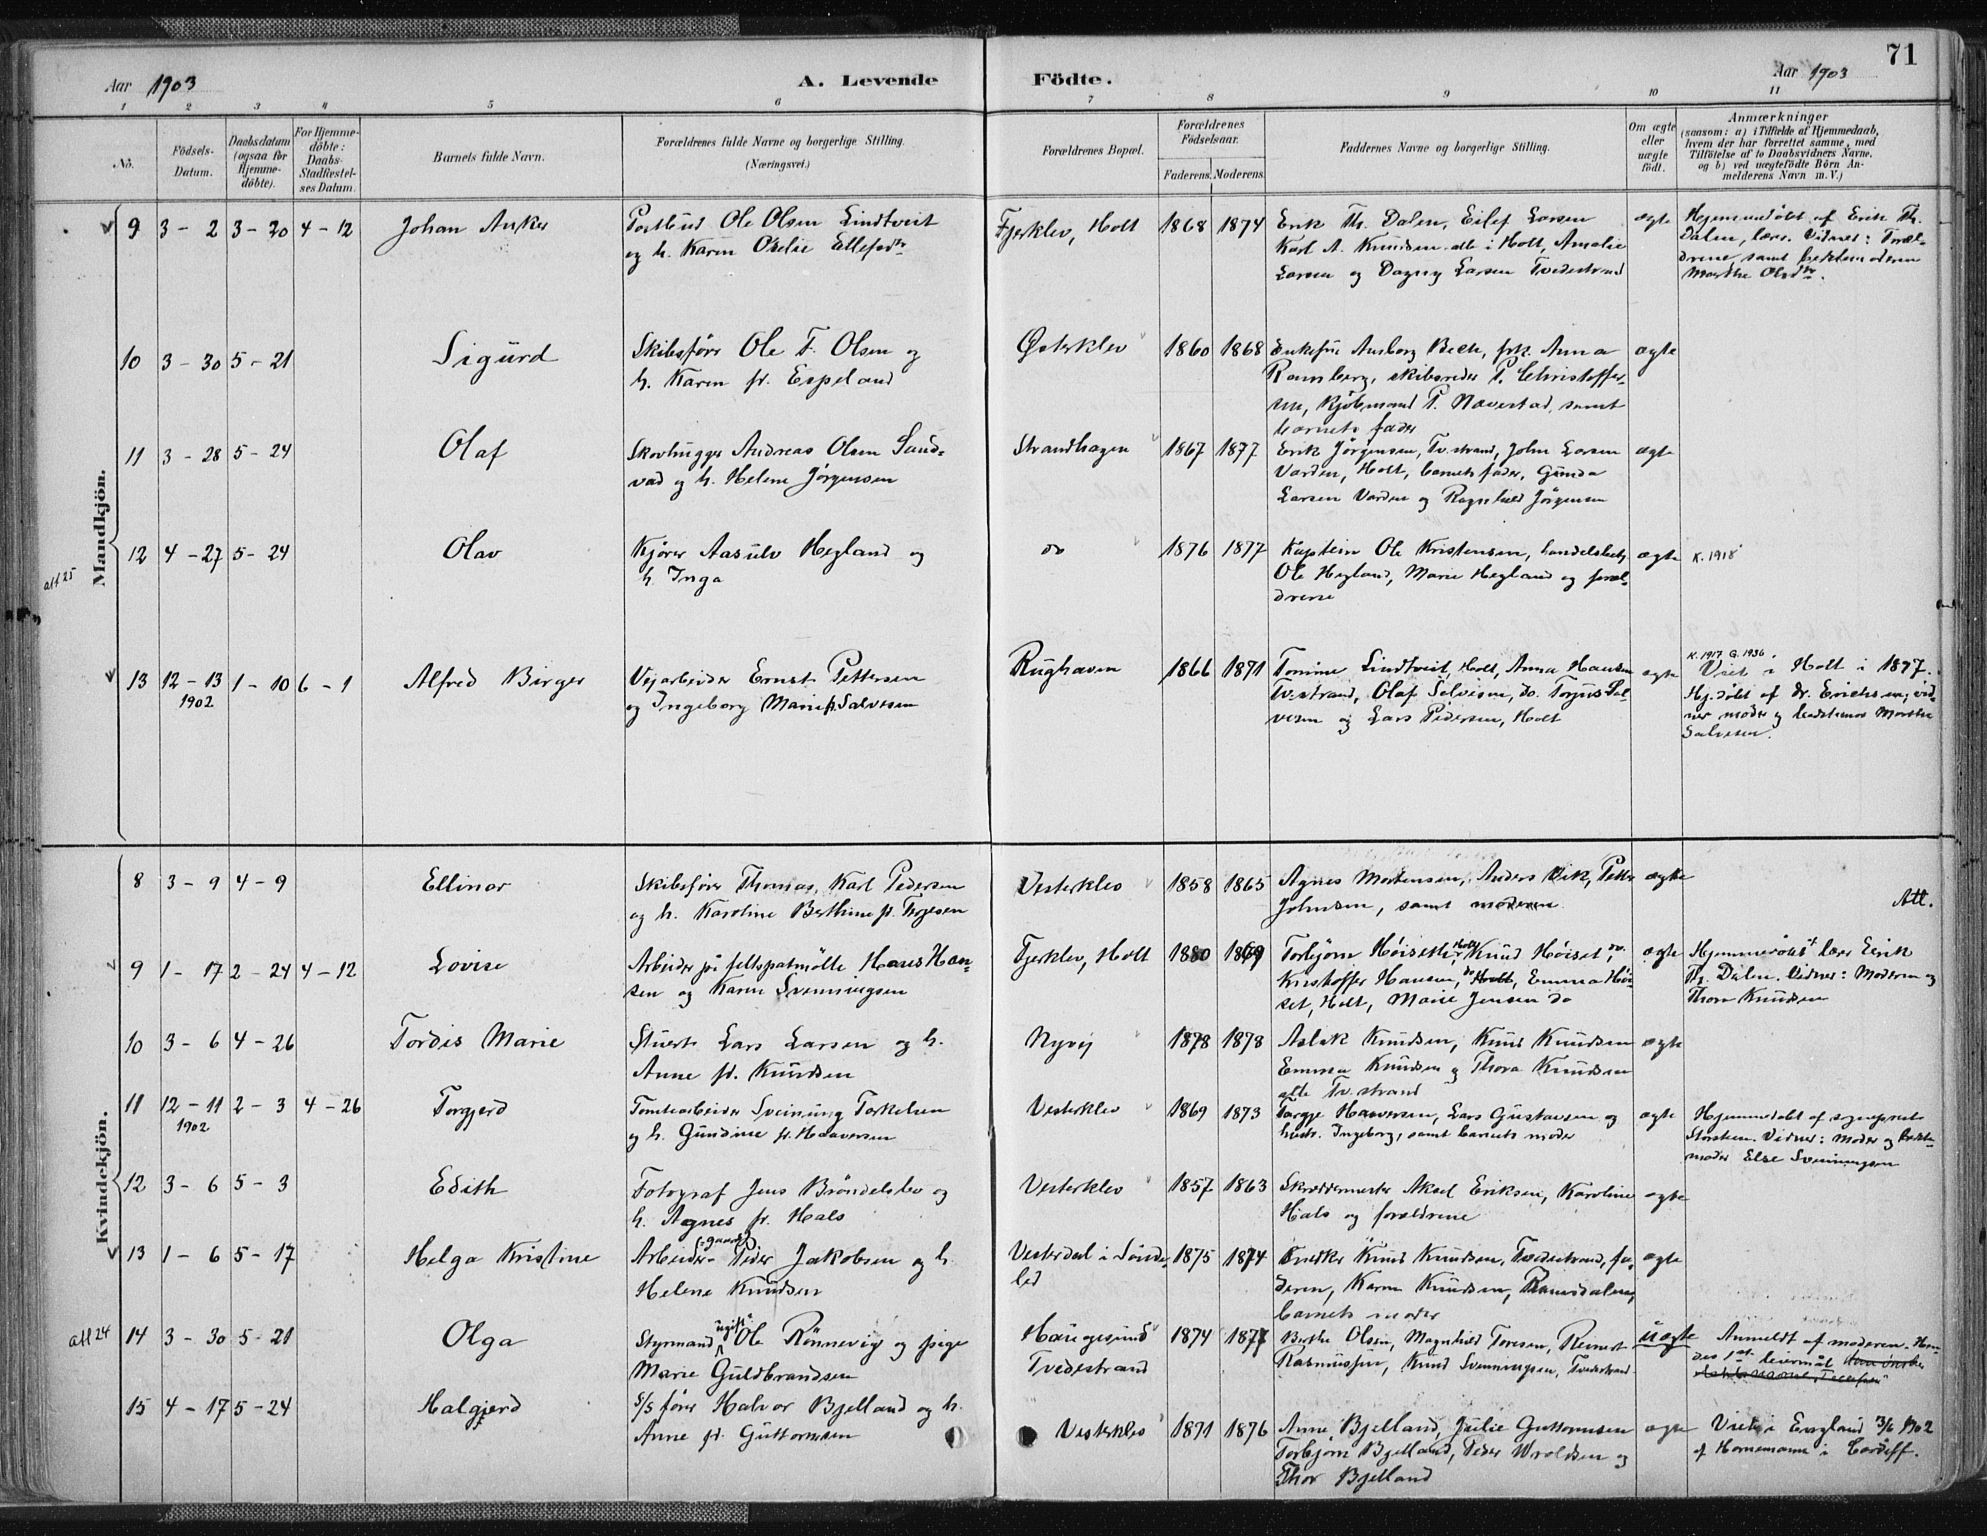 71
Aar 1903 A. Levende Födte. Aar 1903
1 2 3 4 5 6 7 8 9 10 11
No.
Födsels-Datum.
Daabsdatum (ogsaa for Hjemme-döbte).
For Hjemme-döbte: Daabs-Stadfæstel-ses Datum.
Barnets fulde Navn.
Forældrenes fulde Navne og borgerlige Stilling.
(Næringsvei.)
Forældrenes Bopæl.
Forældrenes Födselsaar.
Faderens. Moderens.
Faddernes Navne og borgerlige Stilling.
Om ægte eller uægte födt.
Anmærkninger
(saasom: a) i Tilfælde af Hjemmedaab,
hvem der har forrettet samme, med
Tilföielse af to Daabsvidners Navne,
og b) ved uægtefödte Börn An-
melderens Navn m. V.)
Mandkjön.
att 25
9 3 - 2 3 - 20 4 - 12 Johan Anker
Postbud Ole Olsen Lindtveit
og h. Karen Ellefsdtr
Fjerklev, Holt 1868 1874
Erik Th. Dalen, Eilef Larsen
Karl A. Knudsen alle i Holt, Amalie
Larsen og Dagny Larsen Tvedestrand
ægte
Hjemmedöbt af Erik Th.
Dalen, lærer. Vidner: Foræl-
drene samt
Marthe Olsdtr.
10 3 - 30 5 - 21 Sigurd
Skibsförer Ole F. Olsen og
h. Karen f. Espeland
Østerklev 1860 1868
Enkefru Aasborg Beck, frk. Anna
Ramberg, skibsreder P. Christoffer-
sen, Kjöbmand P. Navestad, samt
barnets fader
ægte
11 3 - 28 5 - 24 Olaf
Skovhugger Andreas Olsen Sand-
vad og h. Helene Jörgensen
Strandhagen 1867 1877
Erik Jörgensen, Tv.strand, John Larsen
Varden, Holt, barnets fader, Gunda
Larsen Varden og Ragnhild Jörgensen
ægte
12 4 - 27 5 - 24 Olav
Kjörer Aasulv Hegland og
h. Inga
do 1876 1877
Kaptein Ole Kristensen, handelsbetj.
Ole Hegland, Marie Hegland og foræl-
drene
ægte K. 1918
13 12 - 13 1 - 10 6 - 1 Alfred Birger
1902
Vejarbeider Ernst Pettersen
og Ingeborg Marie f. Salvesen
Rughaven 1866 1871
Tomine Lindtveit, Holt, Anna Hansen
Tv.strand, Olaf Selvisen, do. Torjus Sal-
vesen og Lars Pedersen, Holt
ægte
K. 1917 G. 1936.
Viet i Holt i 1897.
Hj.döbt af dr. Erichsen, vid-
ner moder og bedstemor Marthe
Salvesen.
Kvindekjön.
8 3 - 9 4 - 9 Ellinor
Skibsförer Thomas Karl Pedersen
og h. Karoline Berthine f. Terjesen
Vesterklev 1858 1865
Agnes Mortensen, Anders Vik, Petter
Johnsen, samt moderen
ægte
Att.
9 1 - 17 2 - 24 4 - 12 Lovise
Arbeider på feltspatmölle Hans Han-
sen og Karen Svenningsen
Fjerklev, Holt 1880 1869
Torbjörn Höiseth, Holt, Knud Höiset, do.
Kristoffer Hansen, do Holt, Emma Höi-
set, Holt, Marie Jensen do
ægte
Hjemmedöbt af lærer Erik
Th. Dalen. Vidner: Moderen og
Thora Knudsen
10 3 - 6 4 - 26 Tordis Marie
Stuert Lars Larsen og h.
Anne f. Knudsen
Nyvej 1878 1878
Aslak Knudsen, Knud Knudsen
Emma Knudsen og Thora Knudsen
alle Tv.strand
ægte
11 12 - 11 2 - 3 4 - 26 Torgjerd
1902
Tomtearbeider Sveinung Torkelsen
og h. Gundine f. Haaversen
Vesterklev 1869 1873
Torgje Haaversen, Lars Gustavsen og
hustr. Ingeborg, samt barnets moder
ægte
Hjemmedöbt af sogneprest
Storsteen. Vidner: Moder og bedste-
moder Else Svenningsen
12 3 - 6 5 - 3 Edith
Fotograf Jens Bröndelslev og
h. Agnes f. Hals
Vesterklev 1857 1863
Skræddermester Aksel Eriksen, Karoline
Hals og forældrene
ægte
13 1 - 6 5 - 17 Helga Kristine
Arbeider Peder Jakobsen og h.
Helene Knudsen
Vesterdal i Sönde-
led 1875 1874
Knud Knudsen, Tvedestrand, fa-
deren, Karen Knudsen, Ramsdalen,
barnets moder
ægte
att 24
14 3 - 30 5 - 21 Olga
Styrmand ugift Ole Rönnevig og pige
Marie Guldbrandsen
Haugesund
Tvedestrand 1874 1877
Berthe Olsen, Magnhild Toresen, Bernt
Rasmussen, Knud Svenningsen, Tvedestrand
uægte
Anmeldt af moderen. Hen-
des 1st leiermål
15 4 - 17 5 - 24 Halgjerd
S/S förer Halvor Bjelland og h.
Anne f. Guttormsen
Vesterklev 1871 1876
Anne Bjelland, Julie Guttormsen
Torbjörn Bjelland, Peder Wroldsen og
Thor Bjelland
ægte
Viet i England 3/6 1902
af Hornemann i Cardiff.